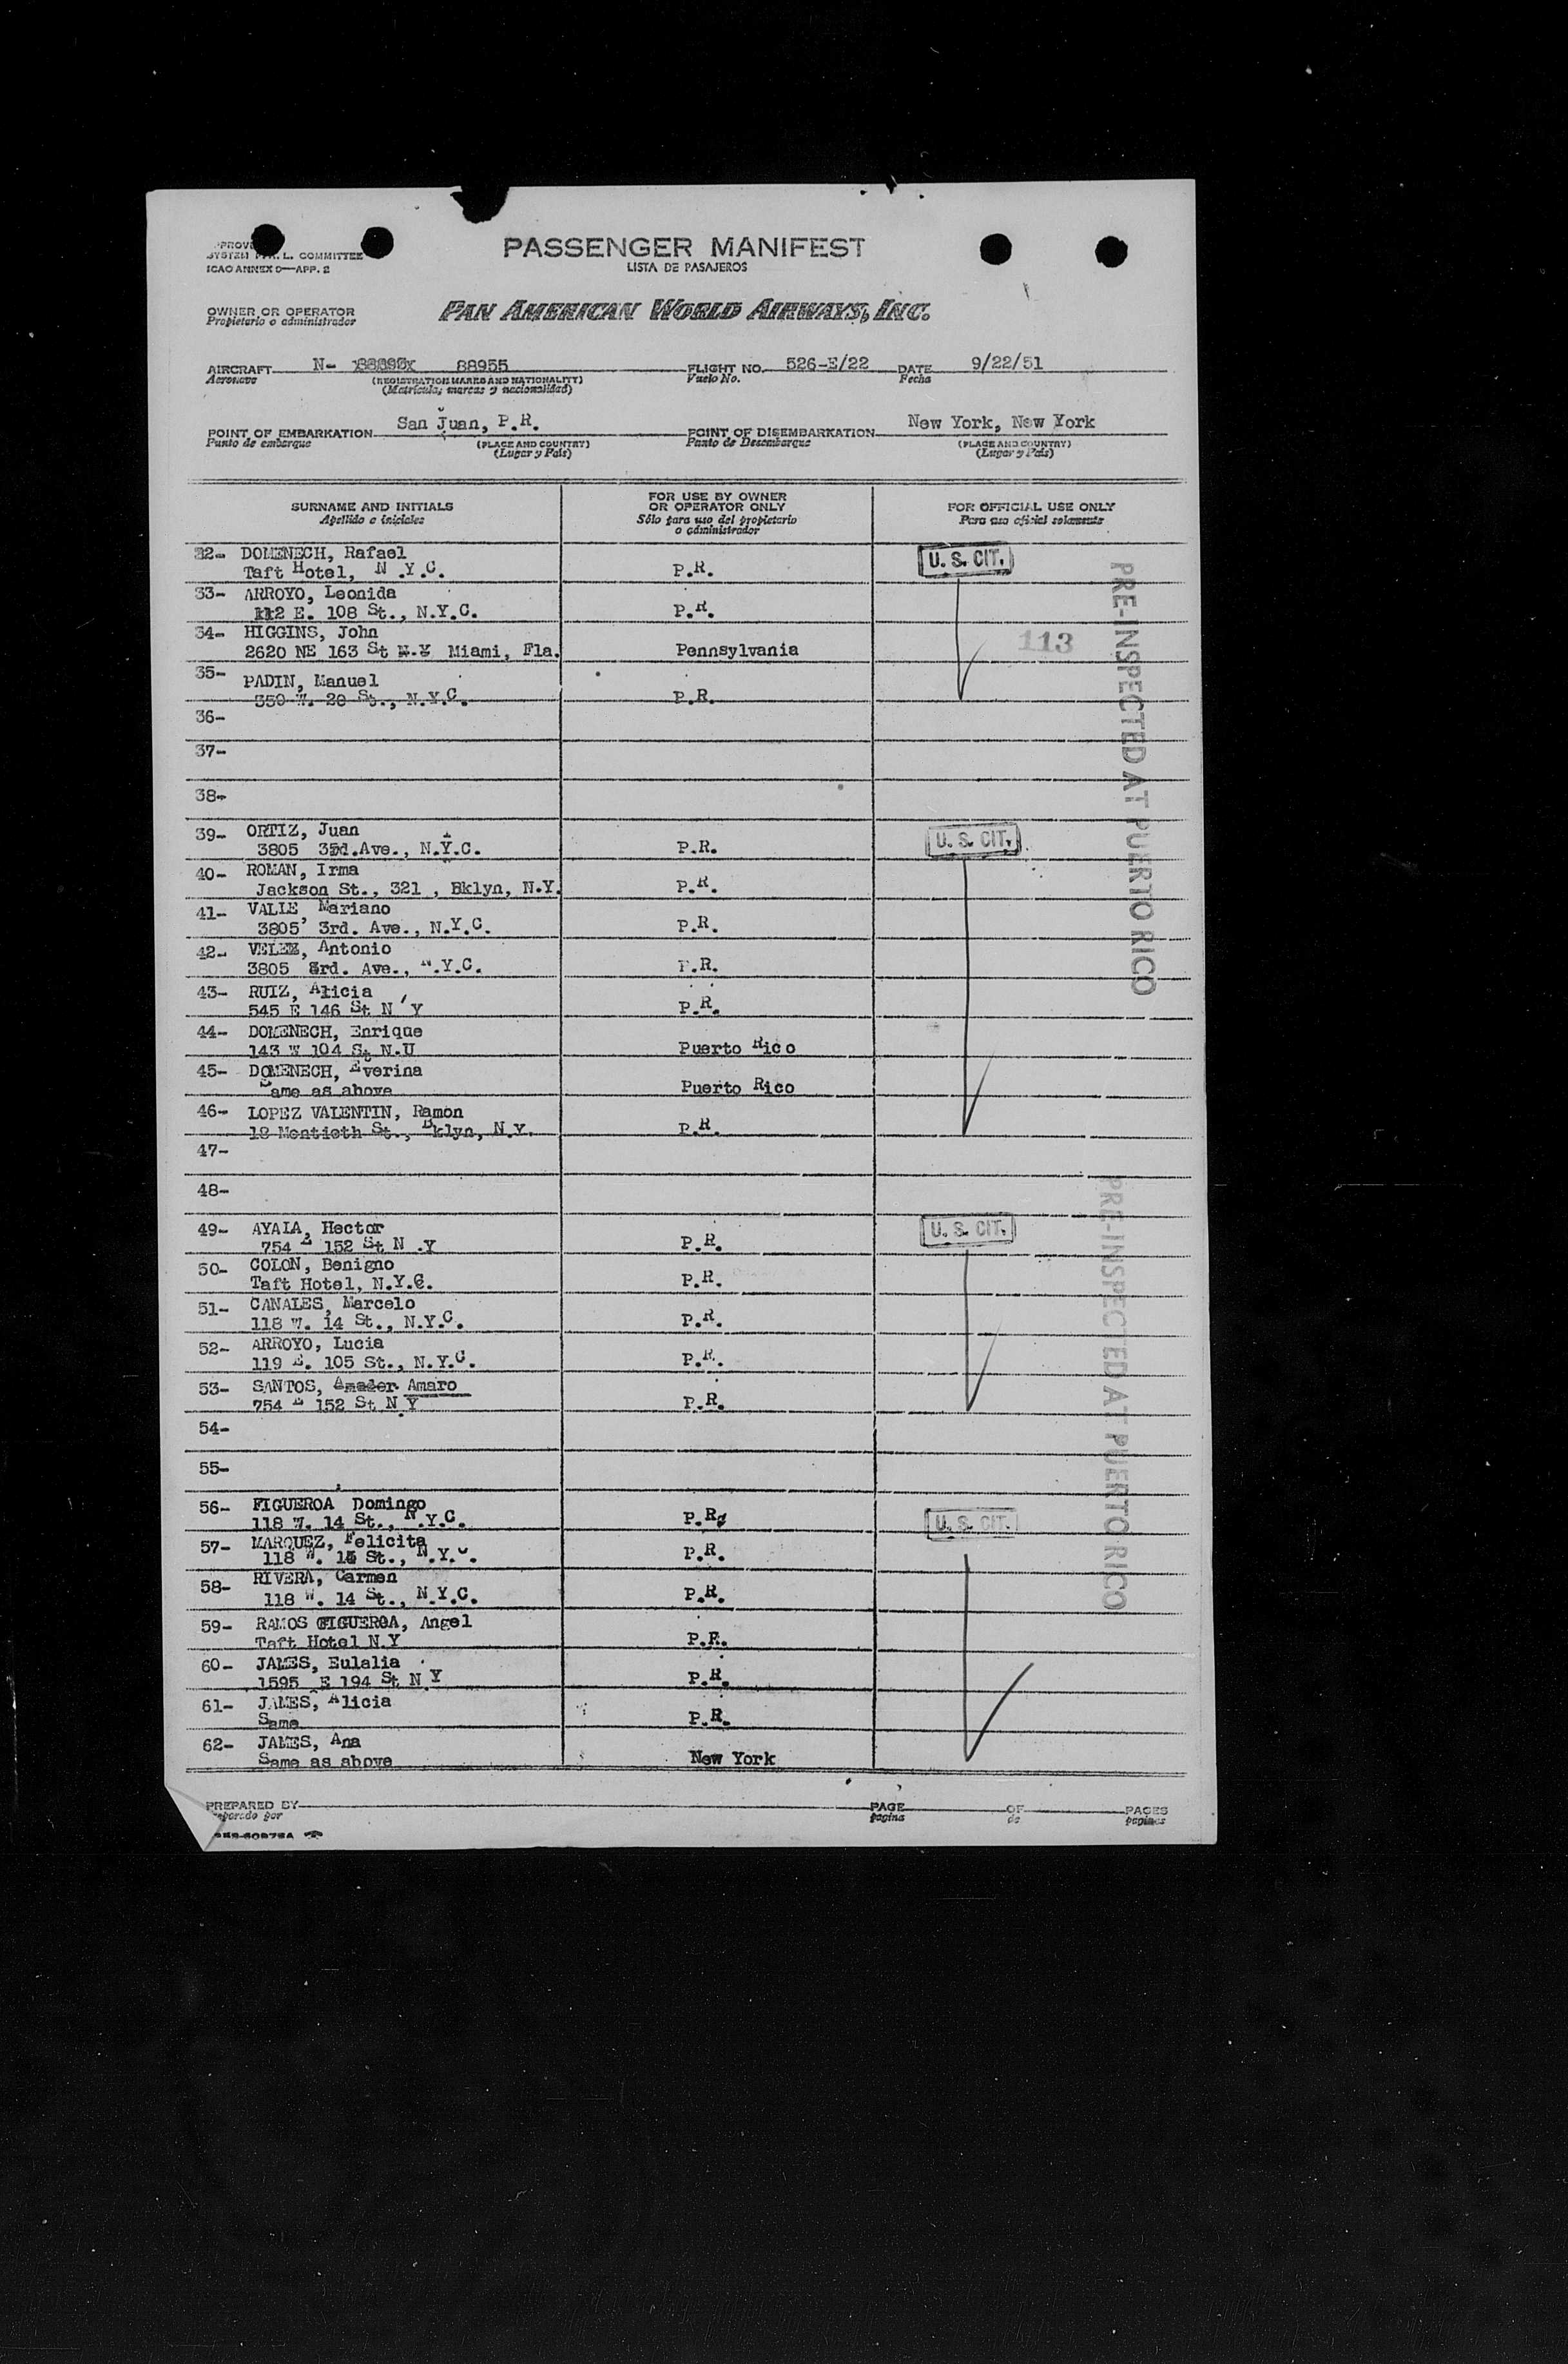 PASSENGER MANIFEST
LISTA DE PASAJEROS
SYSTEM L. COMMITTEE
ICAO ANNEX 9—APP. E
OWNER OR OPERATOR
Propietario o administrador
PAN AMERICAN WORLD AIRWAYS, INC.
AIRCRAFT N- 88955 FLIGHT NO. 526-E/22 DATE 9/22/51
Aeronave (REGISTRATION MARKS AND NATIONALITY) Vuelo No. Fecha
(Matrícula, marcas y nacionalidad)
POINT OF EMBARKATION San Juan, P.R. POINT OF DISEMBARKATION New York, New York
Punto de embarque (PLACE AND COUNTRY) Punto de Desembarque (PLACE AND COUNTRY)
(Lugar y País) (Lugar y País)
SURNAME AND INITIALS FOR USE BY OWNER OR OPERATOR ONLY FOR OFFICIAL USE ONLY
Apellido e iniciales Sólo para uso del propietario o administrador Para uso oficial solamente
32- DOMENECH, Rafael U. S. CIT.
Taft Hotel, N.Y.C. P.R.
33- ARROYO, Leonida
112 E. 108 St., N.Y.C. P.R.
34- HIGGINS, John 113
2620 NE 163 St N.Y Miami, Fla. Pennsylvania
35- PADIN, Manuel
350 W. 20 St., N.Y.C. P.R.
36-
37-
38-
39- ORTIZ, Juan U. S. CIT.
3805 3rd.Ave., N.Y.C. P.R.
40- ROMAN, Irma
Jackson St., 321 , Bklyn, N.Y. P.R.
41- VALLE, Mariano
3805 3rd. Ave., N.Y.C. P.R.
42- VELEZ, Antonio
3805 3rd. Ave., N.Y.C. P.R.
43- RUIZ, Alicia
545 E 146 St N Y P.R.
44- DOMENECH, Enrique
143 W 104 St N.U Puerto Rico
45- DOMENECH, Everina
Same as above Puerto Rico
46- LOPEZ VALENTIN, Ramon
18 Montieth St., Bklyn, N.Y. P.R.
47-
48-
49- AYALA, Hector U. S. CIT.
754 E 152 St N .Y P.R.
50- COLON, Benigno
Taft Hotel, N.Y.C. P.R.
51- CANALES, Marcelo
118 W. 14 St., N.Y.C. P.R.
52- ARROYO, Lucia
119 E. 105 St., N.Y.C. P.R.
53- SANTOS, Amador Amaro
754 E 152 St N.Y P.R.
54-
55-
56- FIGUEROA Domingo U. S. CIT.
118 W. 14 St., N.Y.C. P.R.
57- MARQUEZ, Felicita
118 W. 14 St., N.Y.C. P.R.
58- RIVERA, Carmen
118 W. 14 St., N.Y.C. P.R.
59- RAMOS FIGUEROA, Angel
Taft Hotel N.Y P.R.
60- JAMES, Eulalia
1595 E 194 St N Y P.R.
61- JAMES, Alicia
Same P.R.
62- JAMES, Ana
Same as above New York
PRE-INSPECTED AT PUERTO RICO
PRE-INSPECTED AT PUERTO RICO
PREPARED BY PAGE OF PAGES
Preparado por página de páginas